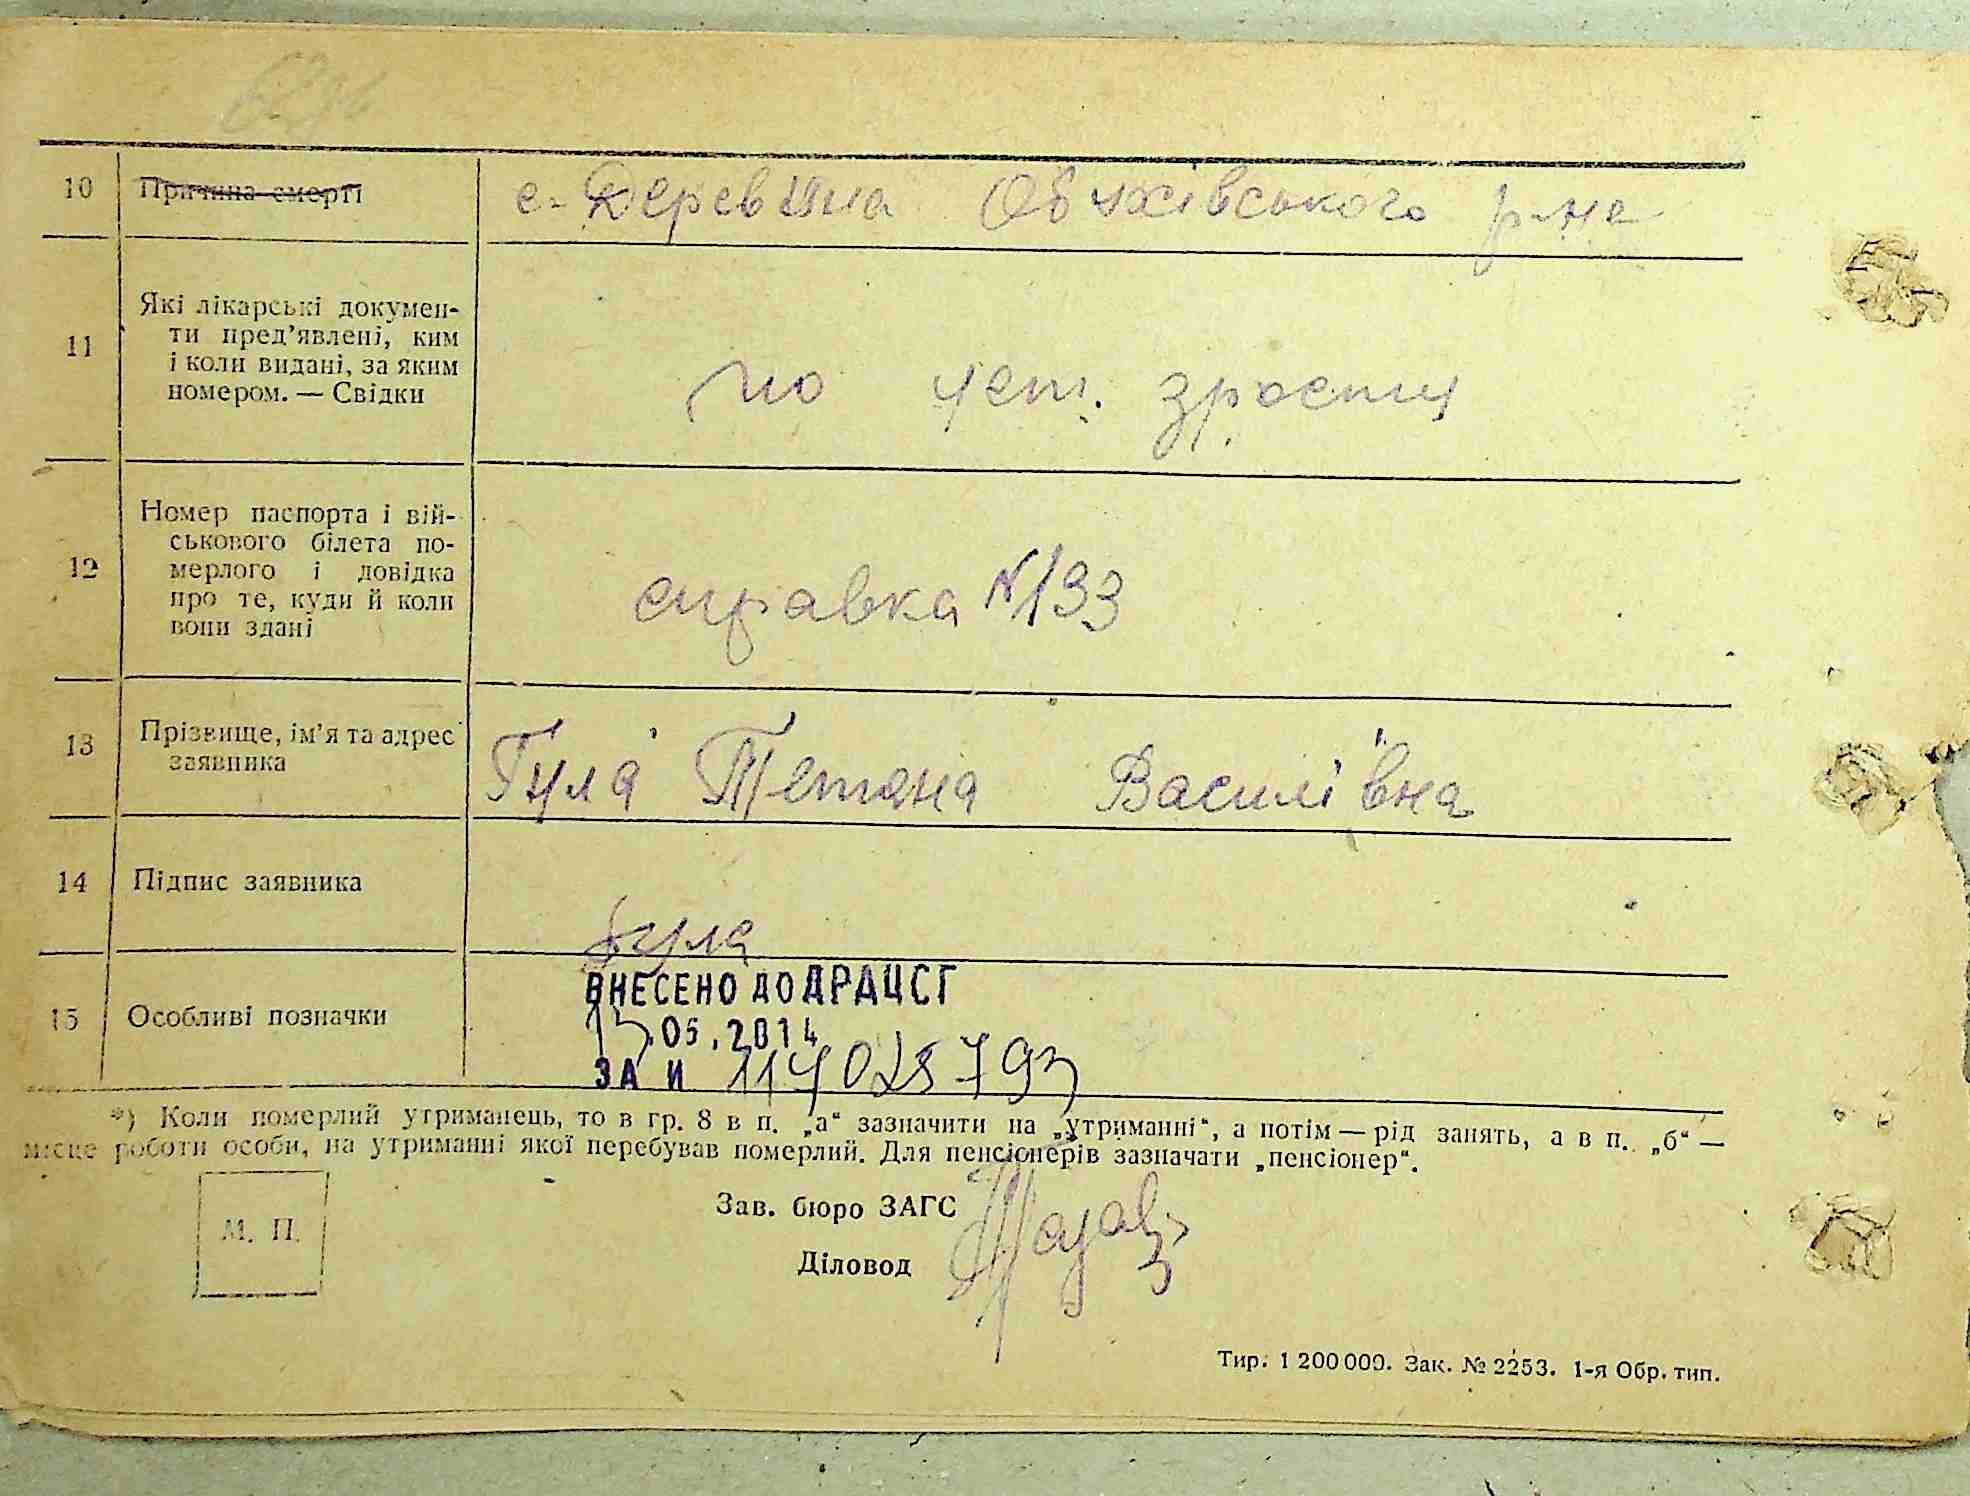 10 Причина смерті с. Дерев'яна Обухівського р-на
11 Які лікарські докумен-
ти пред'явлені, ким
і коли видані, за яким
номером. — Свідки
по уст. зрости
12 Номер паспорта і вій-
ськового білета по-
мерлого і довідка
про те, куди й коли
вони здані
справка №133
13 Прізвище, ім'я та адрес
заявника
Гула Тетяна Василівна
14 Підпис заявника
Гула
15 Особливі позначки
ВНЕСЕНО ДО ДРАЦСГ
15.05.2014
ЗА №
*) Коли померлий утриманець, то в гр. 8 в п. „а“ зазначити на „утриманні“, а потім — рід занять, а в п. „б“ —
місце роботи особи, на утриманні якої перебував померлий. Для пенсіонерів зазначати „пенсіонер“.
М. П.
Зав. бюро ЗАГС
Діловод
Тир. 1 200 000. Зак. № 2253. 1-я Обр. тип.